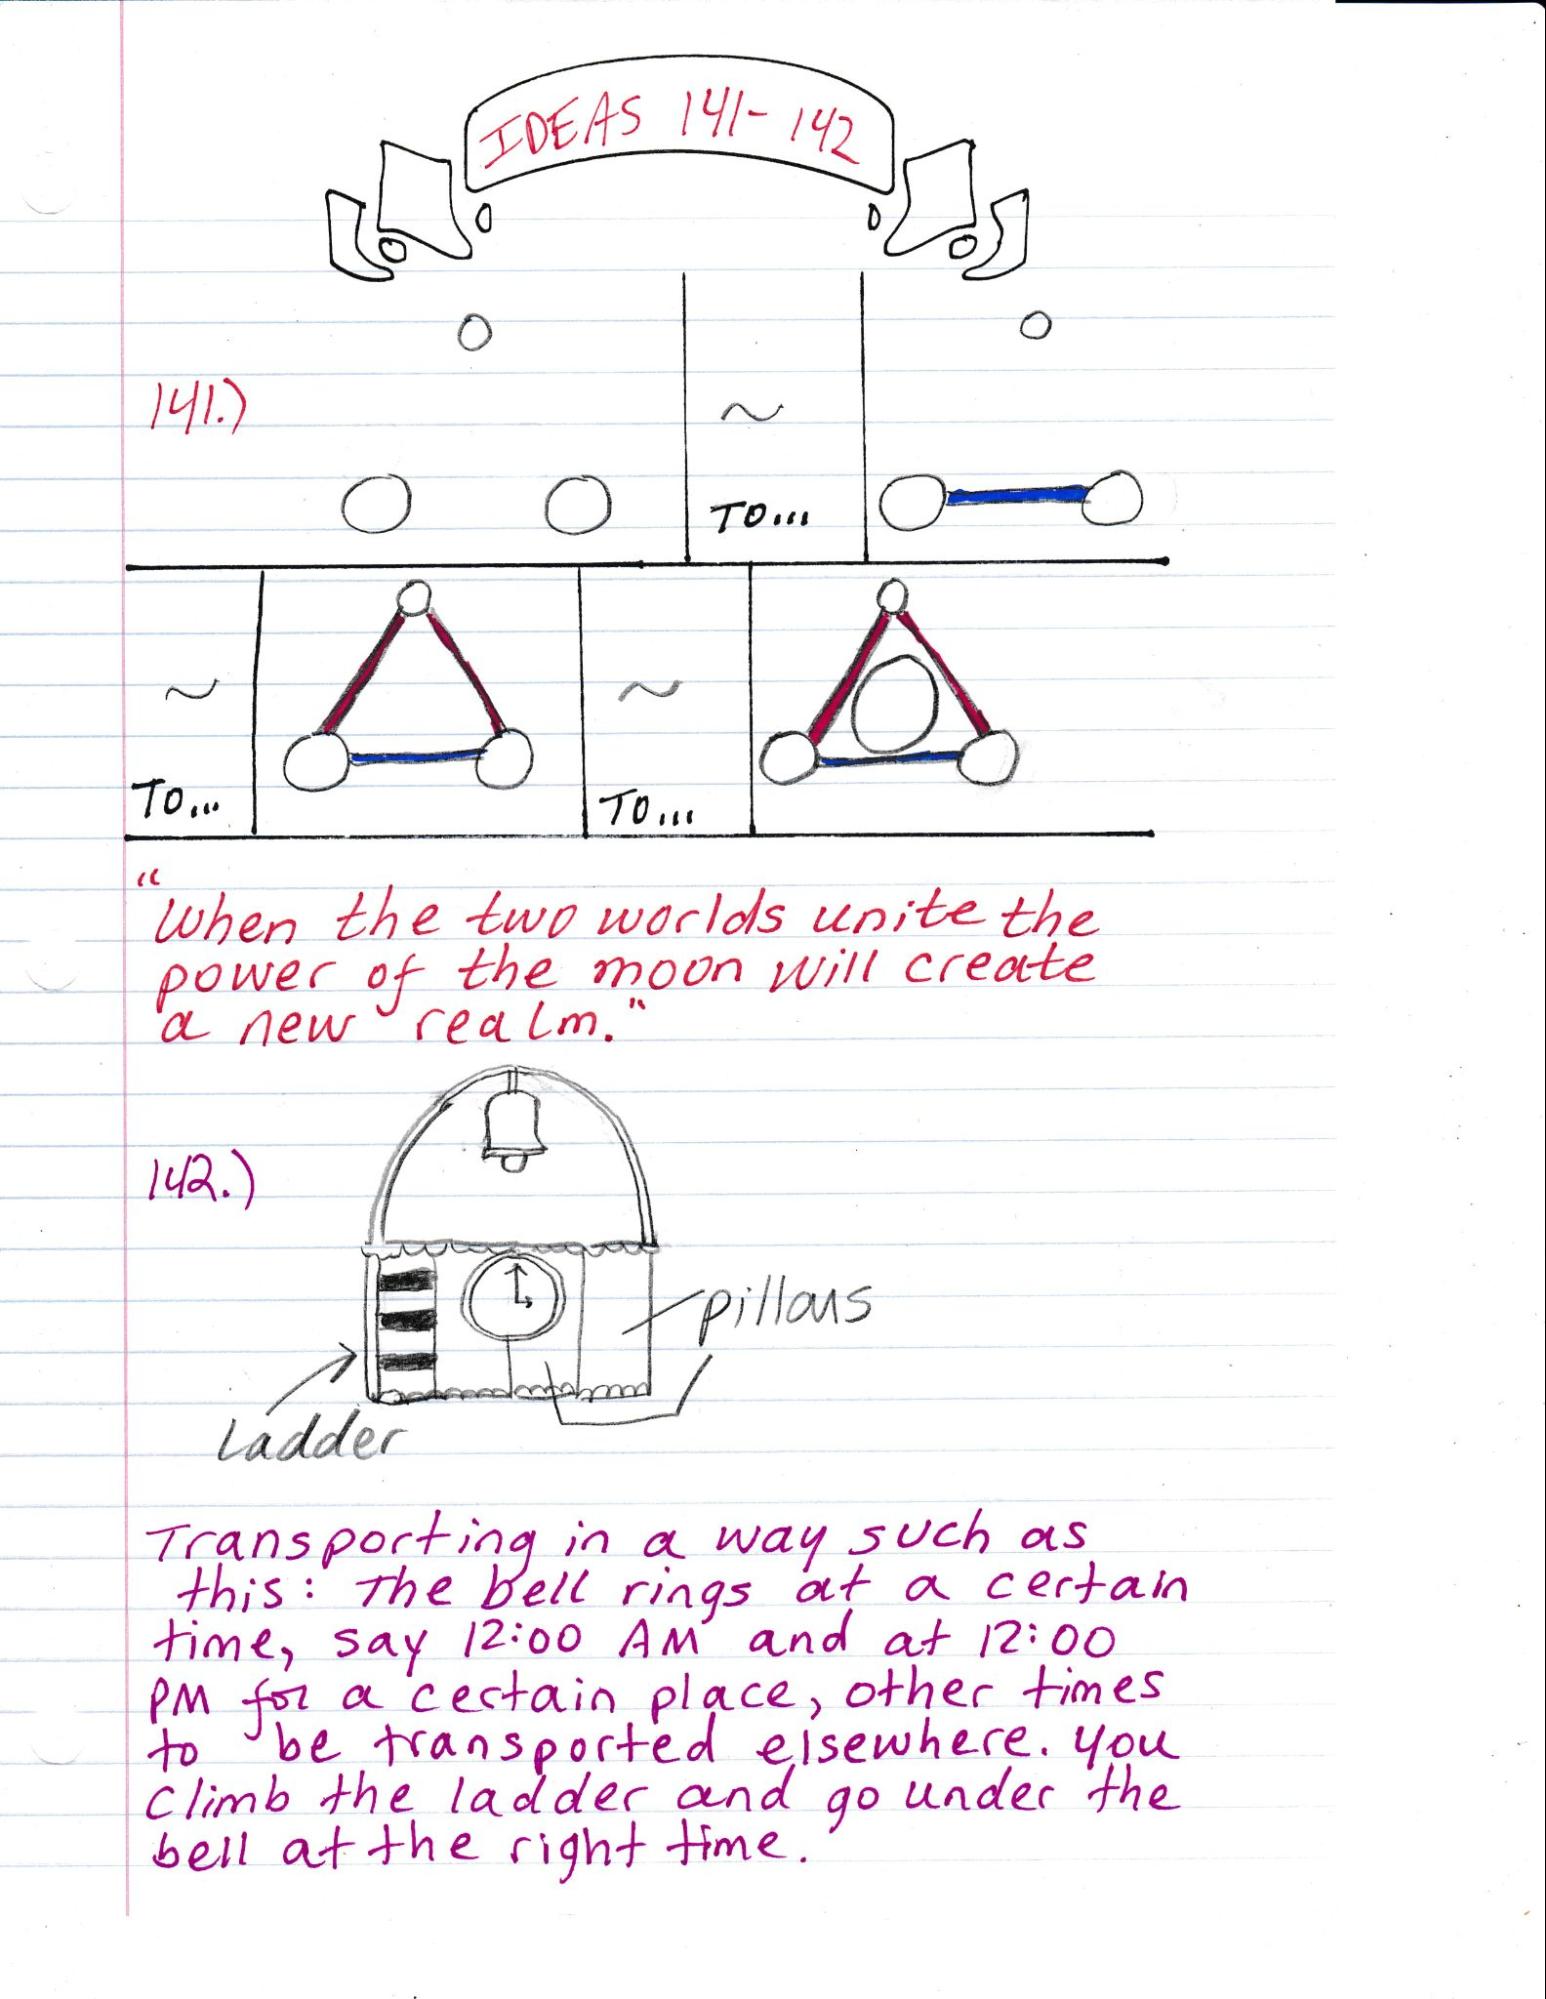 IDEAS 141-142
141.)
~
TO...
~
TO...
~
TO...
"When the two worlds unite the
power of the moon will create
a new realm."
142.)
pillars
Ladder
Transporting in a way such as
this: The bell rings at a certain
time, say 12:00 AM and at 12:00
PM for a certain place, other times
to be transported elsewhere. You
climb the ladder and go under the
bell at the right time.